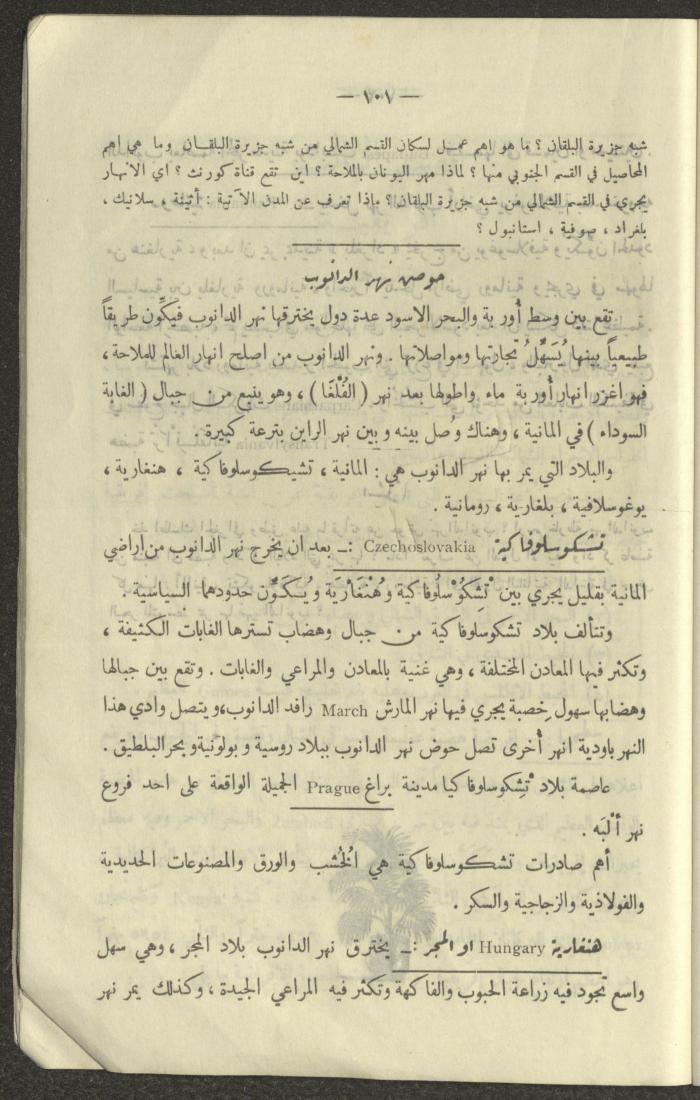 — ١٠١ —
شبه جزيرة البلقان ؟ ما هو اهم عمل لسكان القسم الشمالي من شبه جزيرة البلقان وما هي اهم
المحاصيل في القسم الجنوبي منها ؟ لماذا مهر اليونان بالملاحة ؟ اين تقع قناة كورنث ؟ اي الانهار
يجري في القسم الشمالي من شبه جزيرة البلقان ؟ ماذا تعرف عن المدن الآتية : أتينة ، سلانيك ،
بلغراد ، صوفية ، استانبول ؟
حوض نهر الدانوب
تقع بين وسط أوربة والبحر الاسود عدة دول يخترقها نهر الدانوب فيكوّن طريقاً
طبيعياً بينها يُسَهِّلُ تجارتها ومواصلاتها . ونهر الدانوب من اصلح انهار العالم للملاحة ،
فهو اغزر انهار أوربة ماء واطولها بعد نهر ( الفُلْغَا ) ، وهو ينبع من جبال ( الغابة
السوداء ) في المانية ، وهناك وُصل بينه وبين نهر الراين بترعة كبيرة .
والبلاد التي يمر بها نهر الدانوب هي : المانية ، تشيكوسلوفاكية ، هنغارية ،
يوغوسلافية ، بلغارية ، رومانية .
تشكوسلوفاكية Czechoslovakia :ـ بعد ان يخرج نهر الدانوب من اراضي
المانية بقليل يجري بين تْشِكُوْسلُوفاكية وهُنْغَارية ويُكَوِّن حدودهما السياسية .
وتتألف بلاد تشكوسلوفاكية من جبال وهضاب تسترها الغابات الكثيفة ،
وتكثر فيها المعادن المختلفة ، وهي غنية بالمعادن والمراعي والغابات . وتقع بين جبالها
وهضابها سهول خصبة يجري فيها نهر المارش March رافد الدانوب، ويتصل وادي هذا
النهر باودية انهر أخرى تصل حوض نهر الدانوب ببلاد روسية وبولونية وبحر البلطيق .
عاصمة بلاد تْشِكوسلوفاكيا مدينة براغ Prague الجميلة الواقعة على احد فروع
نهر أَلْبَه .
أهم صادرات تشكوسلوفاكية هي الخُشب والورق والمصنوعات الحديدية
والفولاذية والزجاجية والسكر .
هنغارية Hungary او المجر :ـ يخترق نهر الدانوب بلاد المجر ، وهي سهل
واسع تجود فيه زراعة الحبوب والفاكهة وتكثر فيه المراعي الجيدة ، وكذلك يمر نهر